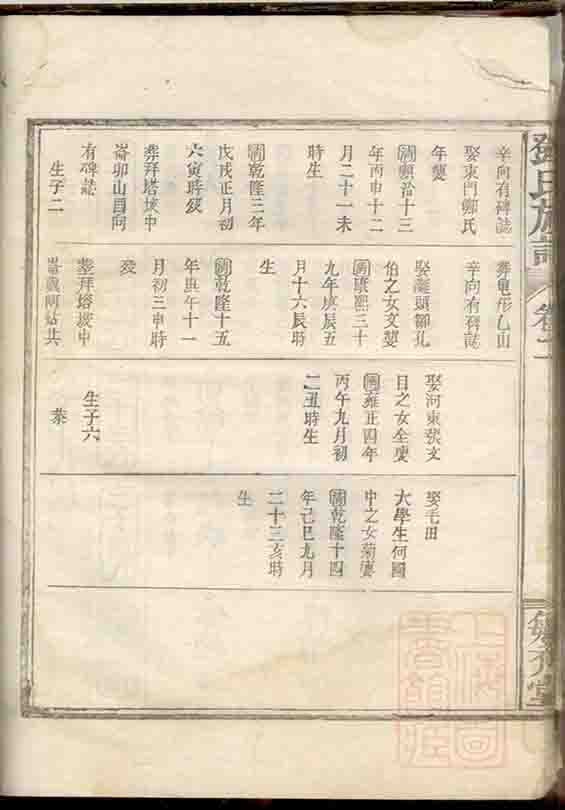 鄧氏族譜
卷二
辛向有碑誌
娶東門鄭氏
年
順治十三
年丙申十二
月二十一未
時生
乾隆三年
戊戌正月初
六寅時歿
葬拜塔坡中
崙卯山酉向
有碑誌
生子二
葬 形乙山
辛向有碑誌
娶 頭鄒孔
伯之女文
康熙三十
九年庚辰五
月十六辰時
生
乾隆十五
年庚午十一
月初三申時
歿
葬拜塔坡中
崙 向 共
娶河東張文
目之女全
雍正四年
丙午九月初
二丑時生
生子六
娶毛田
大學生何國
中之女菊
乾隆十四
年己巳九月
二十三亥時
生